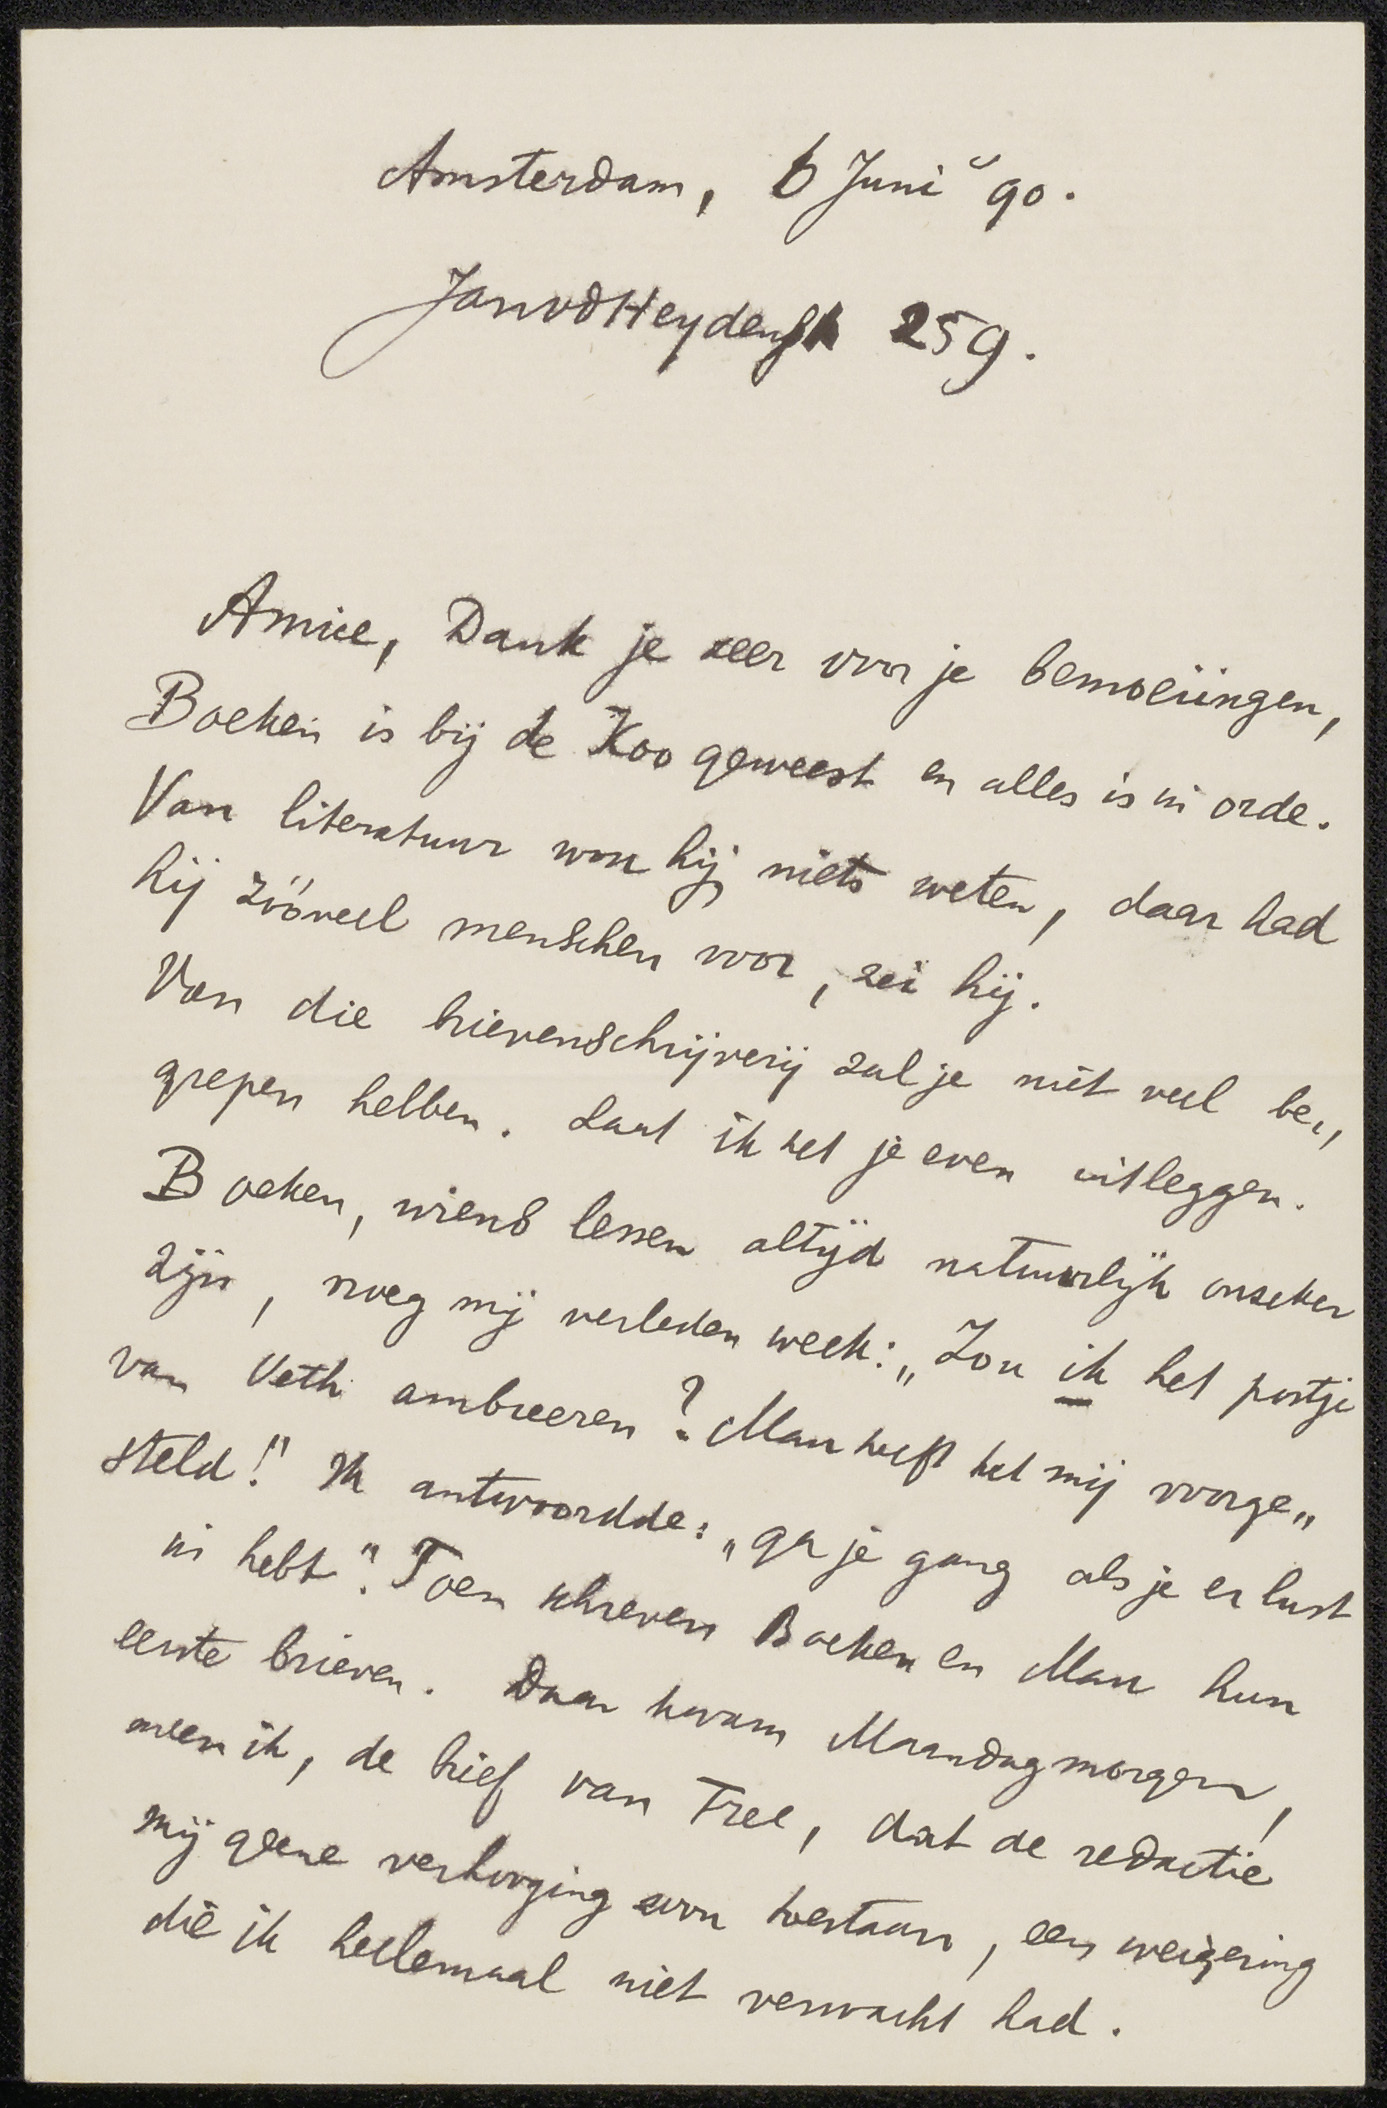 Amsterdam, 6 Juni "90.
JanvdHeydenst 259.
Amice, Dank je zeer voor je bemoeiingen,
Boeken is bij de Koo geweest en alles is in orde.
Van literatuur wou hij niets weten, daar had
hij zóóveel menschen voor, zei hij.
Van die brievenschrijverij zal je niet veel be„
grepen hebben. Laat ik het je even uitleggen.
Boeken, wiens lessen altijd natuurlijk onzeker
zijn, vroeg mij verleden week: „Zou ik het postje
van Veth ambieeren? Mau heeft het mij voorge„
steld!" Ik antwoordde: „ga je gang als je er lust
in hebt". Toen schreven Boeken en Mau hun
eerste brieven. Daar kwam Maandagmorgen,
meen ik, de brief van Free, dat de redactie
mij geene verhooging wou toestaan, een weigering
die ik heelemaal niet verwacht had.